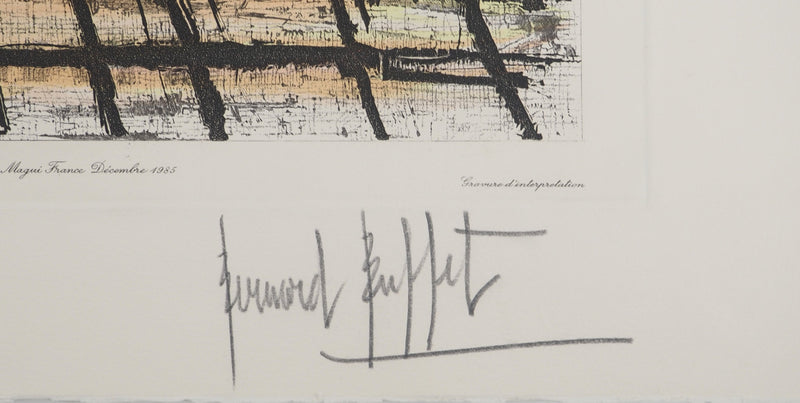 Magui France Décembre 1985
Gravure d'interpretation
Bernard Buffet